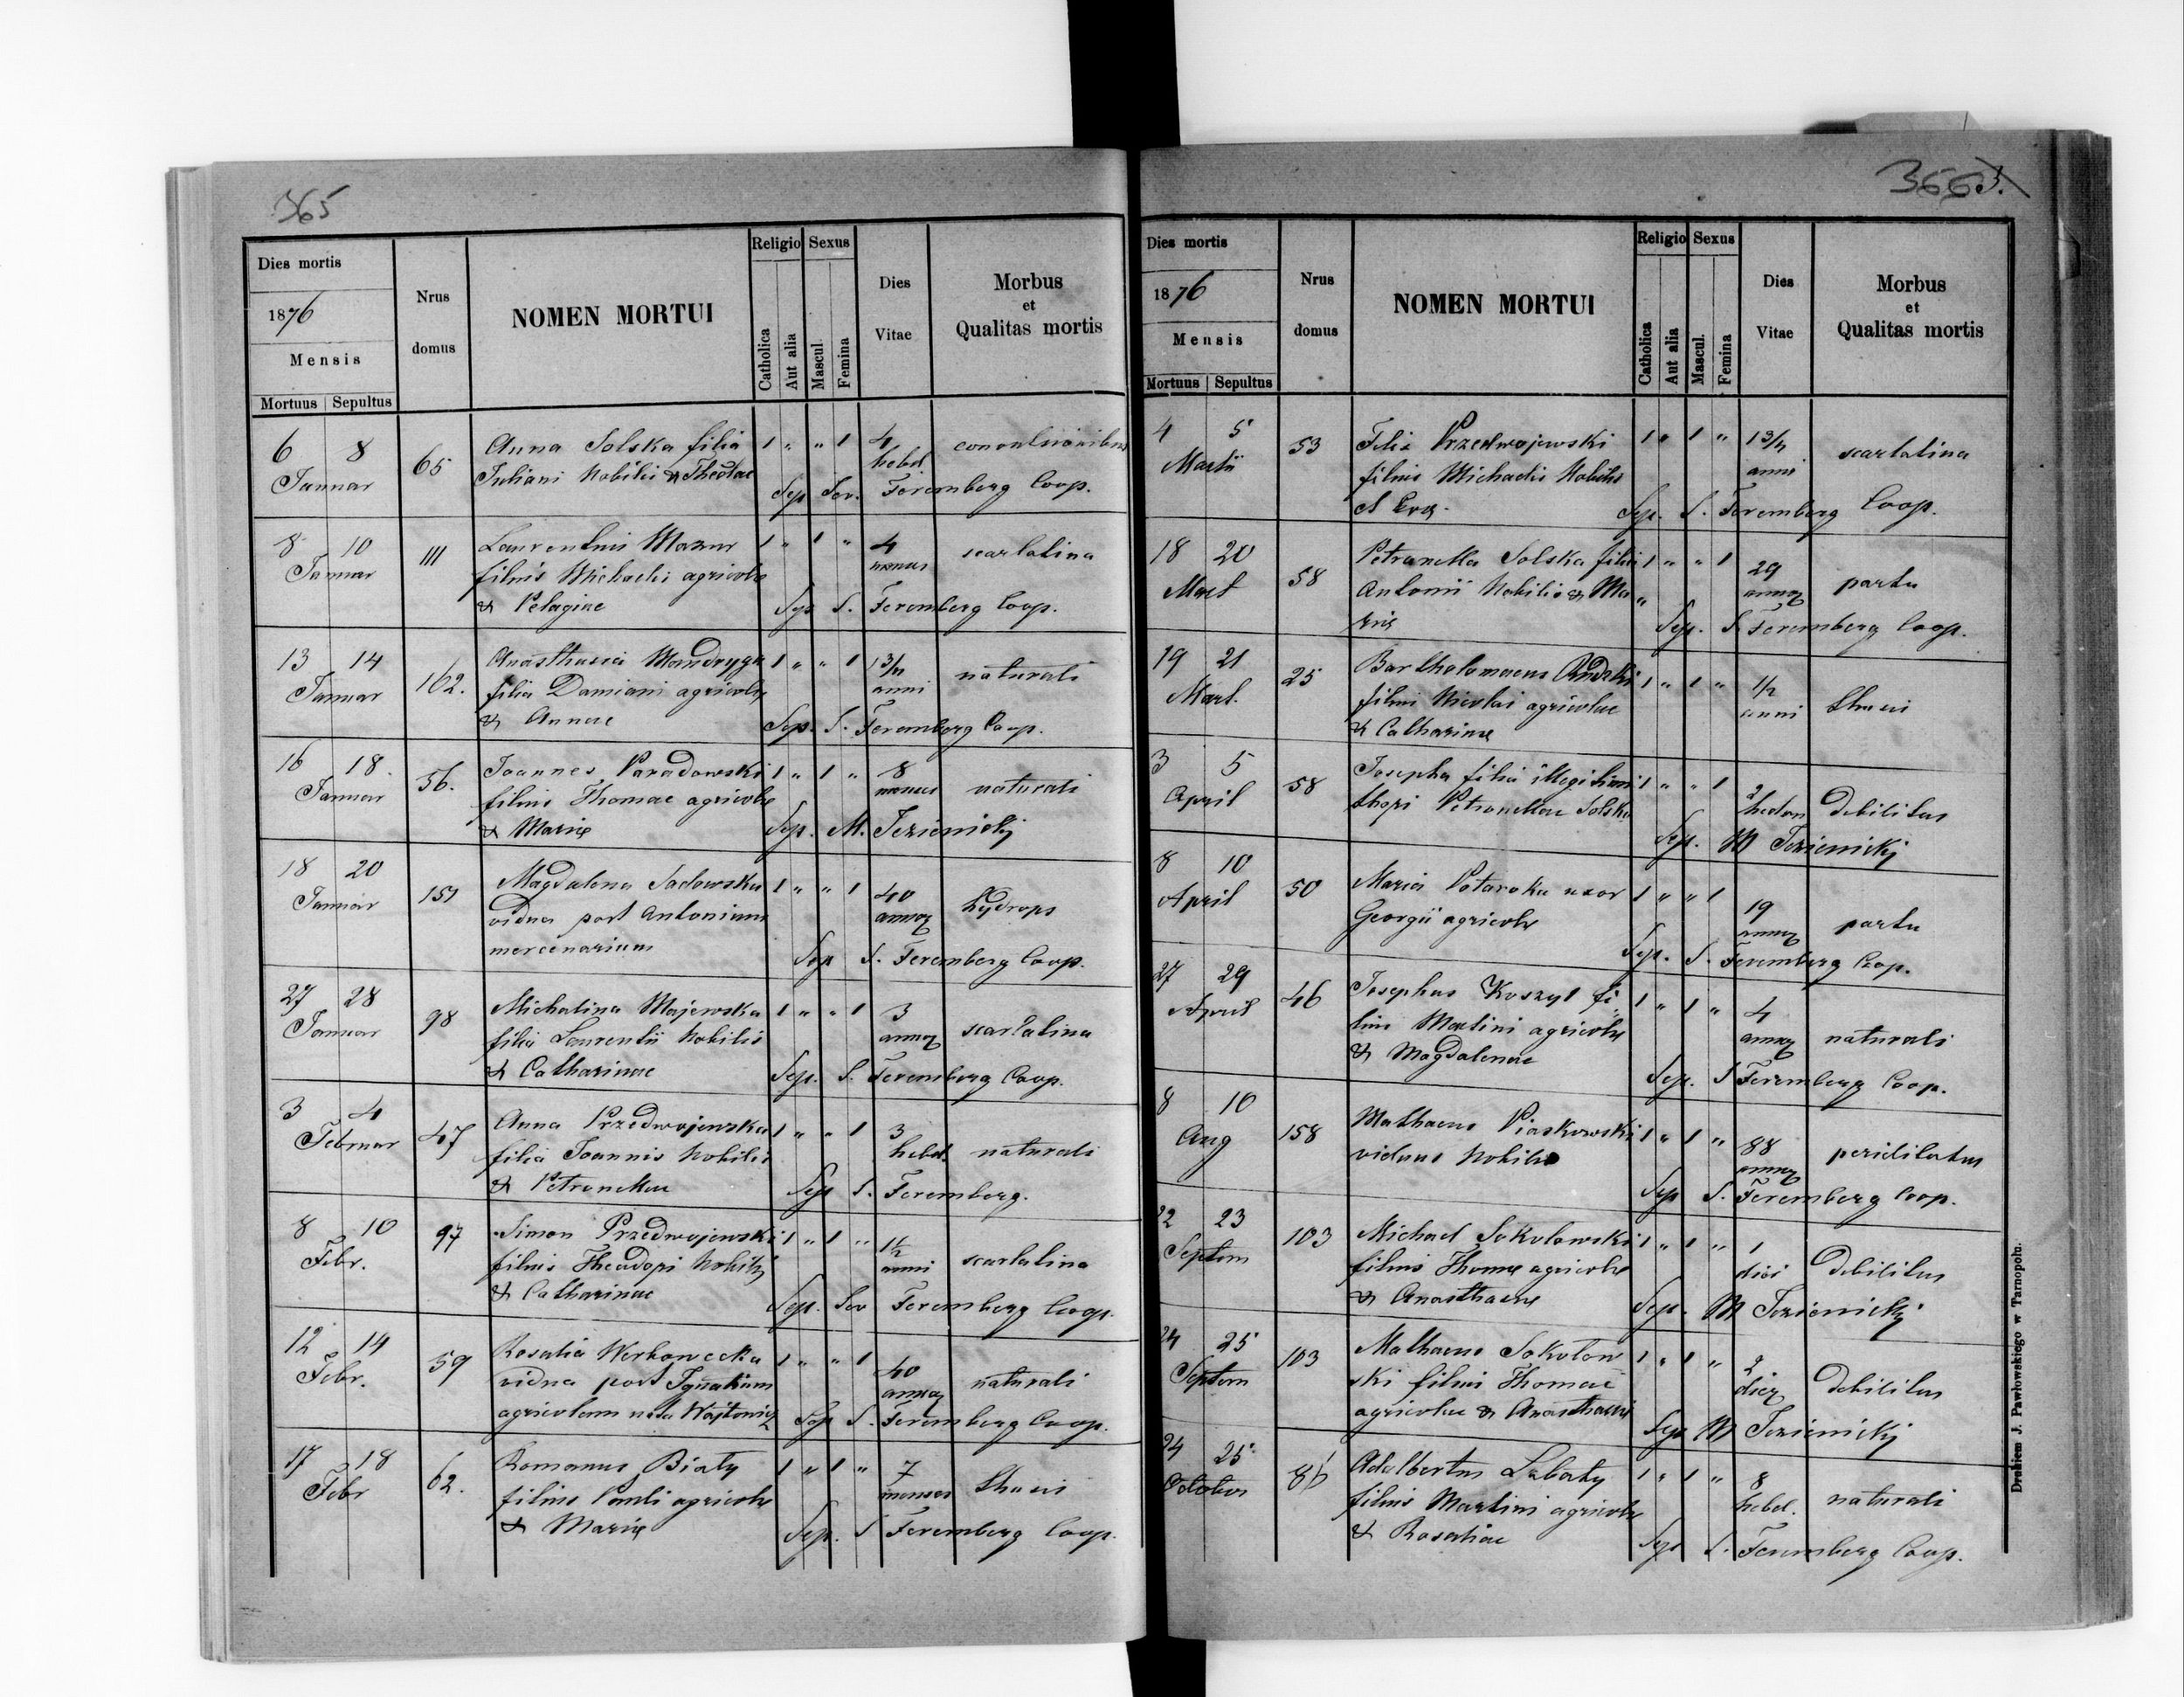 365
Dies mortis
1876
Mensis
Mortuus | Sepultus
Nrus domus
NOMEN MORTUI
Religio
Catholica
Aut alia
Sexus
Mascul.
Femina
Dies Vitae
Morbus et Qualitas mortis
6 8 65 Anna Solska filia 1 " " 1 4 convulsionibus
Januar Juliani Nobilis & Theclae hebd.
Sep Sev. Feremberg Coop.
8 10 111 Laurentius Mazur 1 " 1 " 4 scarlatina
Januar filius Michaelis agricolae menses
& Pelagiae Sep S. Feremberg Coop.
13 14 162. Anasthasia Mandryga 1 " " 1 1 3/4 naturali
Januar filia Damiani agricolae anni
& Annae Sep. S. Feremberg Coop.
16 18. 56. Joannes Paradowski 1 " 1 " 8 naturali
Januar filius Thomae agricolae menses
& Mariae Sep. M. Jezienicky
18 20 151 Magdalena Sadowska 1 " " 1 40 hydrops
Januar vidua post Antonium annor
mercenarium Sep S. Feremberg Coop.
27 28 98 Michalina Majewska 1 " " 1 3 scarlatina
Januar filia Laurentii Nobilis annor
& Catharinae Sep. S. Feremberg Coop.
3 4 47 Anna Przedwojewska 1 " " 1 3 naturali
Februar filia Joannis Nobilis hebd.
& Petronellae Sep S. Feremberg.
8 10 97 Simon Przedwojewski 1 " 1 " 1 1/2 scarlatina
Febr. filius Theodori Nobilis anni
& Catharinae Sep. Sev Feremberg Coop.
12 14 59 Rosalia Werbowecka 1 " " 1 40 naturali
Febr. vidua post Ignatium annor
agricolam nata Wojtowicz Sep S. Feremberg Coop.
17 18 62. Romanus Biały 1 " 1 " 7 thusi
Febr filius Pauli agricolae menses
& Mariae Sep. S Feremberg Coop.
366 3.
Dies mortis
1876
Mensis
Mortuus | Sepultus
Nrus domus
NOMEN MORTUI
Religio
Catholica
Aut alia
Sexus
Mascul.
Femina
Dies Vitae
Morbus et Qualitas mortis
4 5 53 Felix Przedwojewski 1 " 1 " 1 3/4 scarlatina
Martii filius Michaelis Nobilis anni
& Evae Sep. S. Feremberg Coop.
18 20 58 Petronella Solska filia 1 " " 1 29 partu
Mart Antonii Nobilis & Ma annor
riae Sep. S. Feremberg Coop.
19 21 25 Bartholomaeus 1 " 1 " 1/2 thusi
Mart. filius Nicolai agricolae anni
& Catharinae
3 5 58 Josepha filia illegitimi 1 " " 1 2 debilitas
April thori Petronellae Solska hedom
Sep. M Jezienicky
8 10 50 Maria Potaraka uxor 1 " " 1 19 partu
April Georgii agricolae annor
Sep. S. Feremberg Coop.
27 29 46 Josephus Koszyl fi 1 " 1 " 4 naturali
April lius Martini agricolae annor
& Magdalenae Sep. S Feremberg Coop.
8 10 158 Mathaeus Piaskowski 1 " 1 " 88
Aug viduus Nobilis annor
Sep S. Feremberg Coop.
22 23 103 Michael Sokolowski 1 " 1 " 1 debilitas
Septem filius Thomae agricolae diei
& Anasthasiae Sep. M Jezienicky
24 25 103 Mathaeus Sokolow 1 " 1 " 2 debilitas
Septem ski filius Thomae dier
agricolae & Anasthasiae Sep M Jezienicky
24 25 86 Adalbertus Labaty 1 " 1 " 8 naturali
October filius Martini agricolae hebd.
& Rosaliae Sep S. Feremberg Coop.
Drukiem J. Pawłowskiego w Tarnopolu.